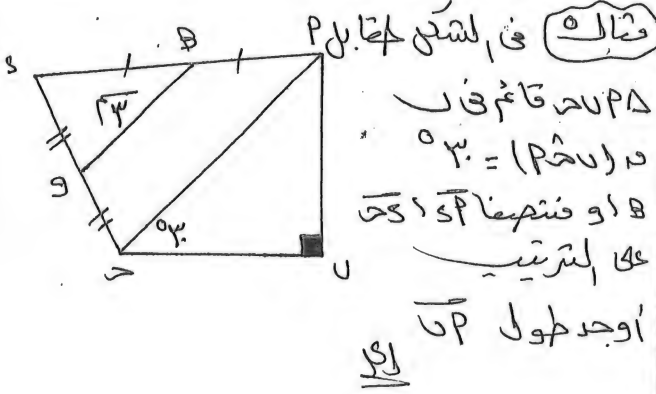 مثال ٥ فى الشكل المقابل
△ أ ب ح قائم فى ب
ق (ب ح̂ أ) = ٣٠°
هـ ، و منتصفا أ د ، د ح
على الترتيب
أوجد طول أ ب
الحل
أ
هـ
د
٣ سم
و
٣٠°
ح
ب